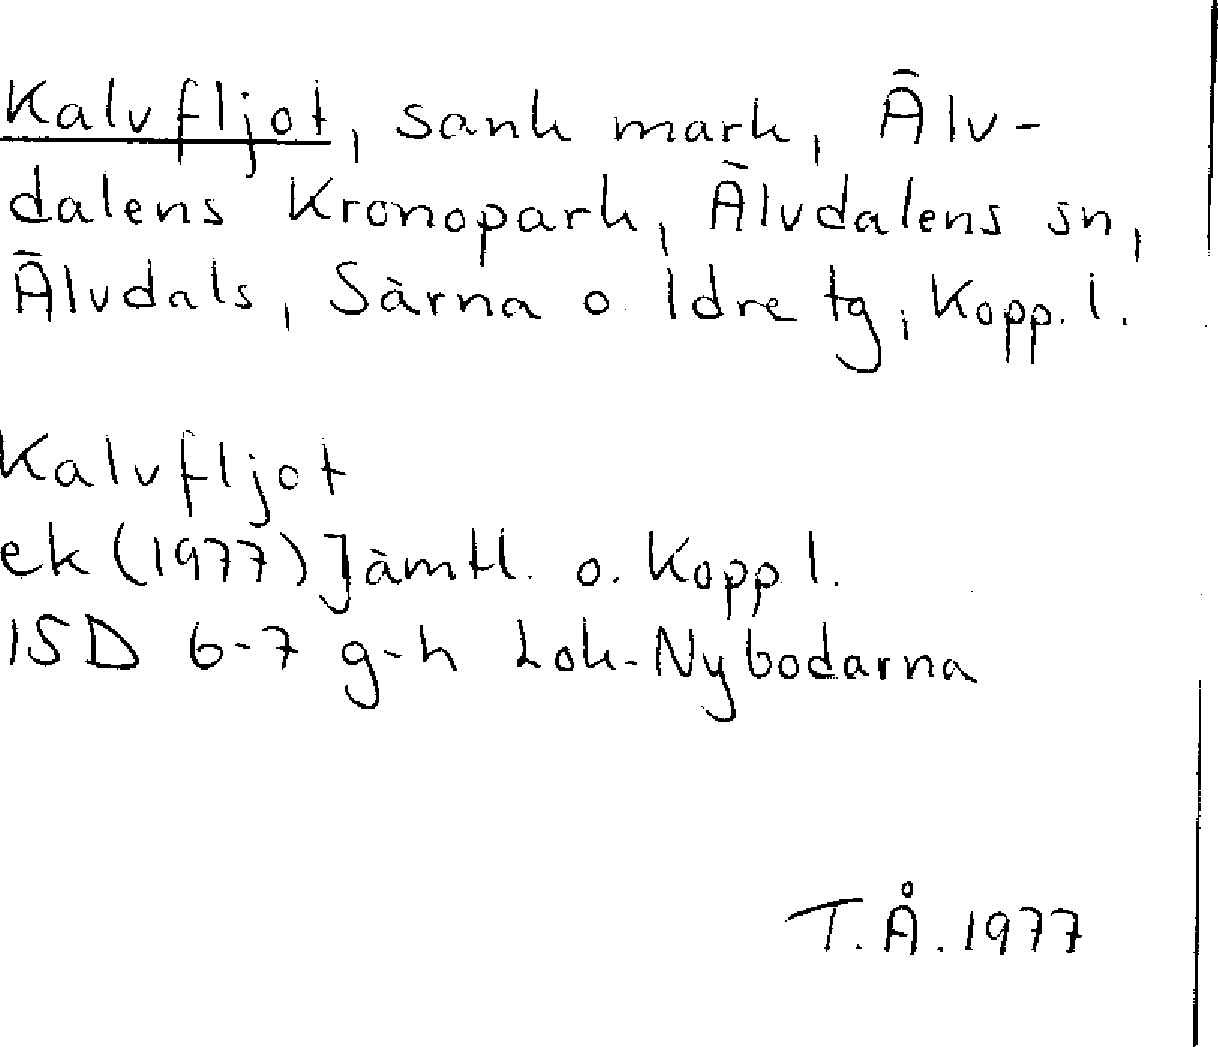 Kalvfljot, sank mark, Älv-
dalens Kronopark, Älvdalens sn,
Älvdals, Särna o. Idre tg, Kopp. l.
Kalvfljot
ek (1977) Jämtl. o. Kopp l.
15D 6-7 g-h Lok-Nybodarna
T.Å. 1977